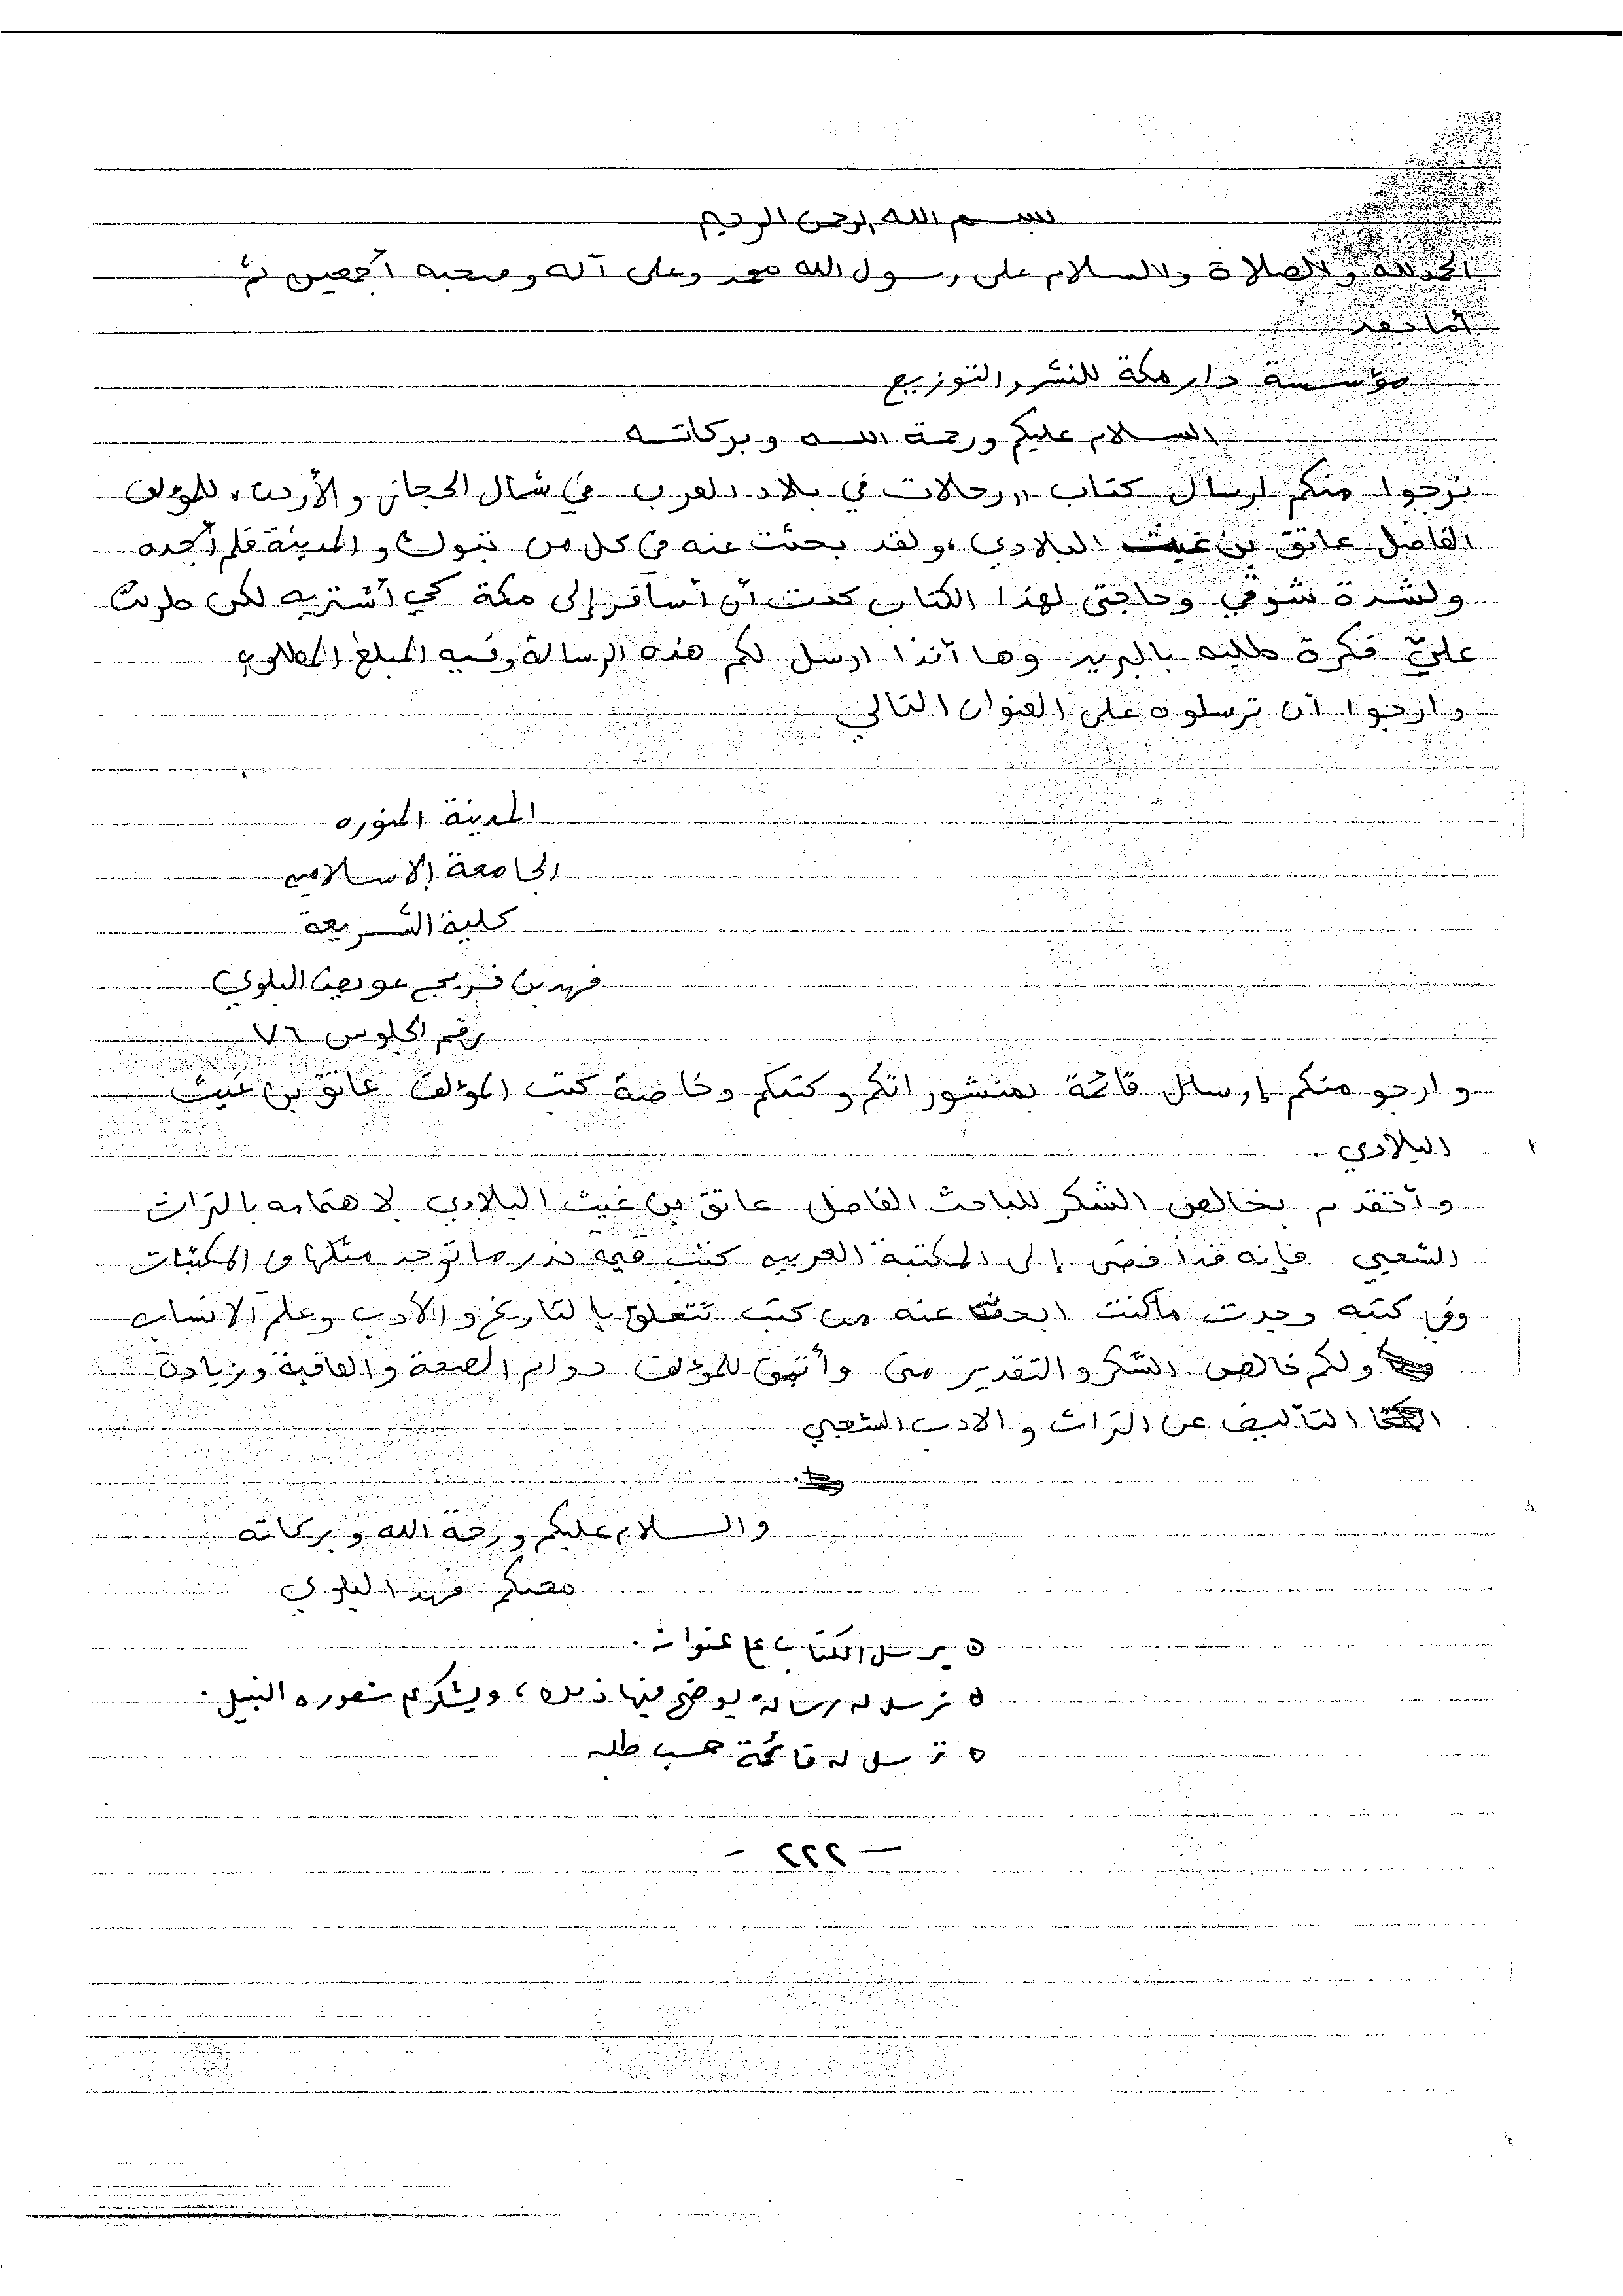 بسم الله الرحمن الرحيم
الحمد لله والصلاة والسلام على رسول الله محمد وعلى آله وصحبه أجمعين ثم
أما بعد
مؤسسة دار مكة للنشر والتوزيع
السلام عليكم ورحمة الله وبركاته
نرجوا منكم ارسال كتاب ,,رحالات في بلاد العرب في شمال الحجاز والأردن,, للمؤلف
الفاضل عاتق بن غيث البلادي، ولقد بحثت عنه في كل من تبوك والمدينة فلم أجده
ولشدة شوقي وحاجتي لهذا الكتاب كدت أن أسافر إلى مكة كي أشتريه لكن طرئت
عليّ فكرة طلبه بالبريد وها أنذا ارسل لكم هذه الرسالة وفيه المبلغ المطلوب
وارجوا أن ترسلوه على العنوان التالي
المدينة المنوره
الجامعة الاسلاميه
كلية الشريعة
فهد بن فريج عويض البلوي
رقم الجلوس ٧٦
وارجو منكم إرسال قائمة بمنشوراتكم وكتبكم وخاصة كتب المؤلف عاتق بن غيث
البلادي .
وأتقدم بخالص الشكر للباحث الفاضل عاتق بن غيث البلادي لاهتمامه بالتراث
الشعبي فإنه قد أضفى إلى المكتبة العربيه كتب قيمة ندر ما توجد مثلها في المكتبات
وفي كتبه وجدت ماكنت ابحث عنه من كتب تتعلق بالتاريخ والأدب وعلم الانساب
ولكم خالص الشكر والتقدير مني وأتمنى للمؤلف دوام الصحة والعافية وزيادة
التأليف عن التراث والادب الشعبي
والسلام عليكم ورحمة الله وبركاته
محبكم فهد البلوي
٥ يرسل الكتاب على عنوانه .
٥ ترسل له رسالة يوضح فيها ذلك ، ويشكر على شعوره النبيل .
٥ ترسل له قائمة حسب طلبه
— ٢٢٢ —